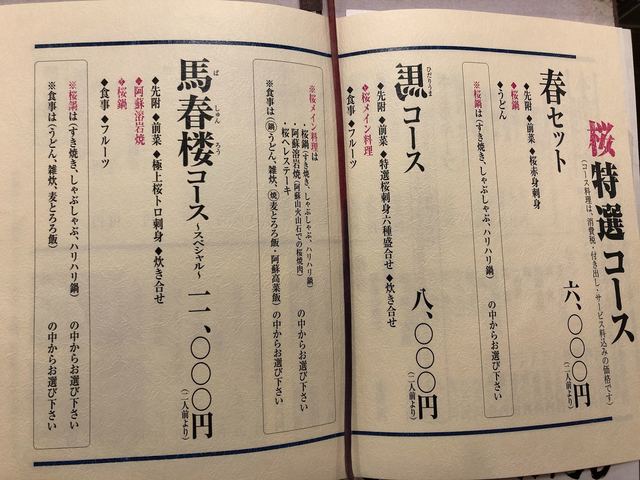 桜特選コース
(コース料理は、消費税・付き出し・サービス料込みの価格です)
春セット 六、〇〇〇円
(二人前より)
◆先附 ◆前菜 ◆桜赤身刺身
◆桜鍋
◆うどん
※桜鍋は(すき焼き、しゃぶしゃぶ、ハリハリ鍋) の中からお選び下さい
馬コース 八、〇〇〇円
ひだりうま
(二人前より)
◆先附 ◆前菜 ◆特選桜刺身六種盛合せ ◆炊き合せ
◆桜メイン料理
◆食事 ◆フルーツ
※桜メイン料理は
・桜鍋(すき焼き、しゃぶしゃぶ、ハリハリ鍋)
・阿蘇溶岩焼(阿蘇山火山石での桜焼肉) の中からお選び下さい
・桜ヘレステーキ
※食事は(鍋)うどん、雑炊、(焼)麦とろろ飯・阿蘇高菜飯) の中からお選び下さい
馬春楼コース 〜スペシャル〜 一一、〇〇〇円
ば しゅん ろう
(二人前より)
◆先附 ◆前菜 ◆極上桜トロ刺身 ◆炊き合せ
◆阿蘇溶岩焼
◆桜鍋
◆食事 ◆フルーツ
※桜鍋は(すき焼き、しゃぶしゃぶ、ハリハリ鍋) の中からお選び下さい
※食事は(うどん、雑炊、麦とろろ飯) の中からお選び下さい